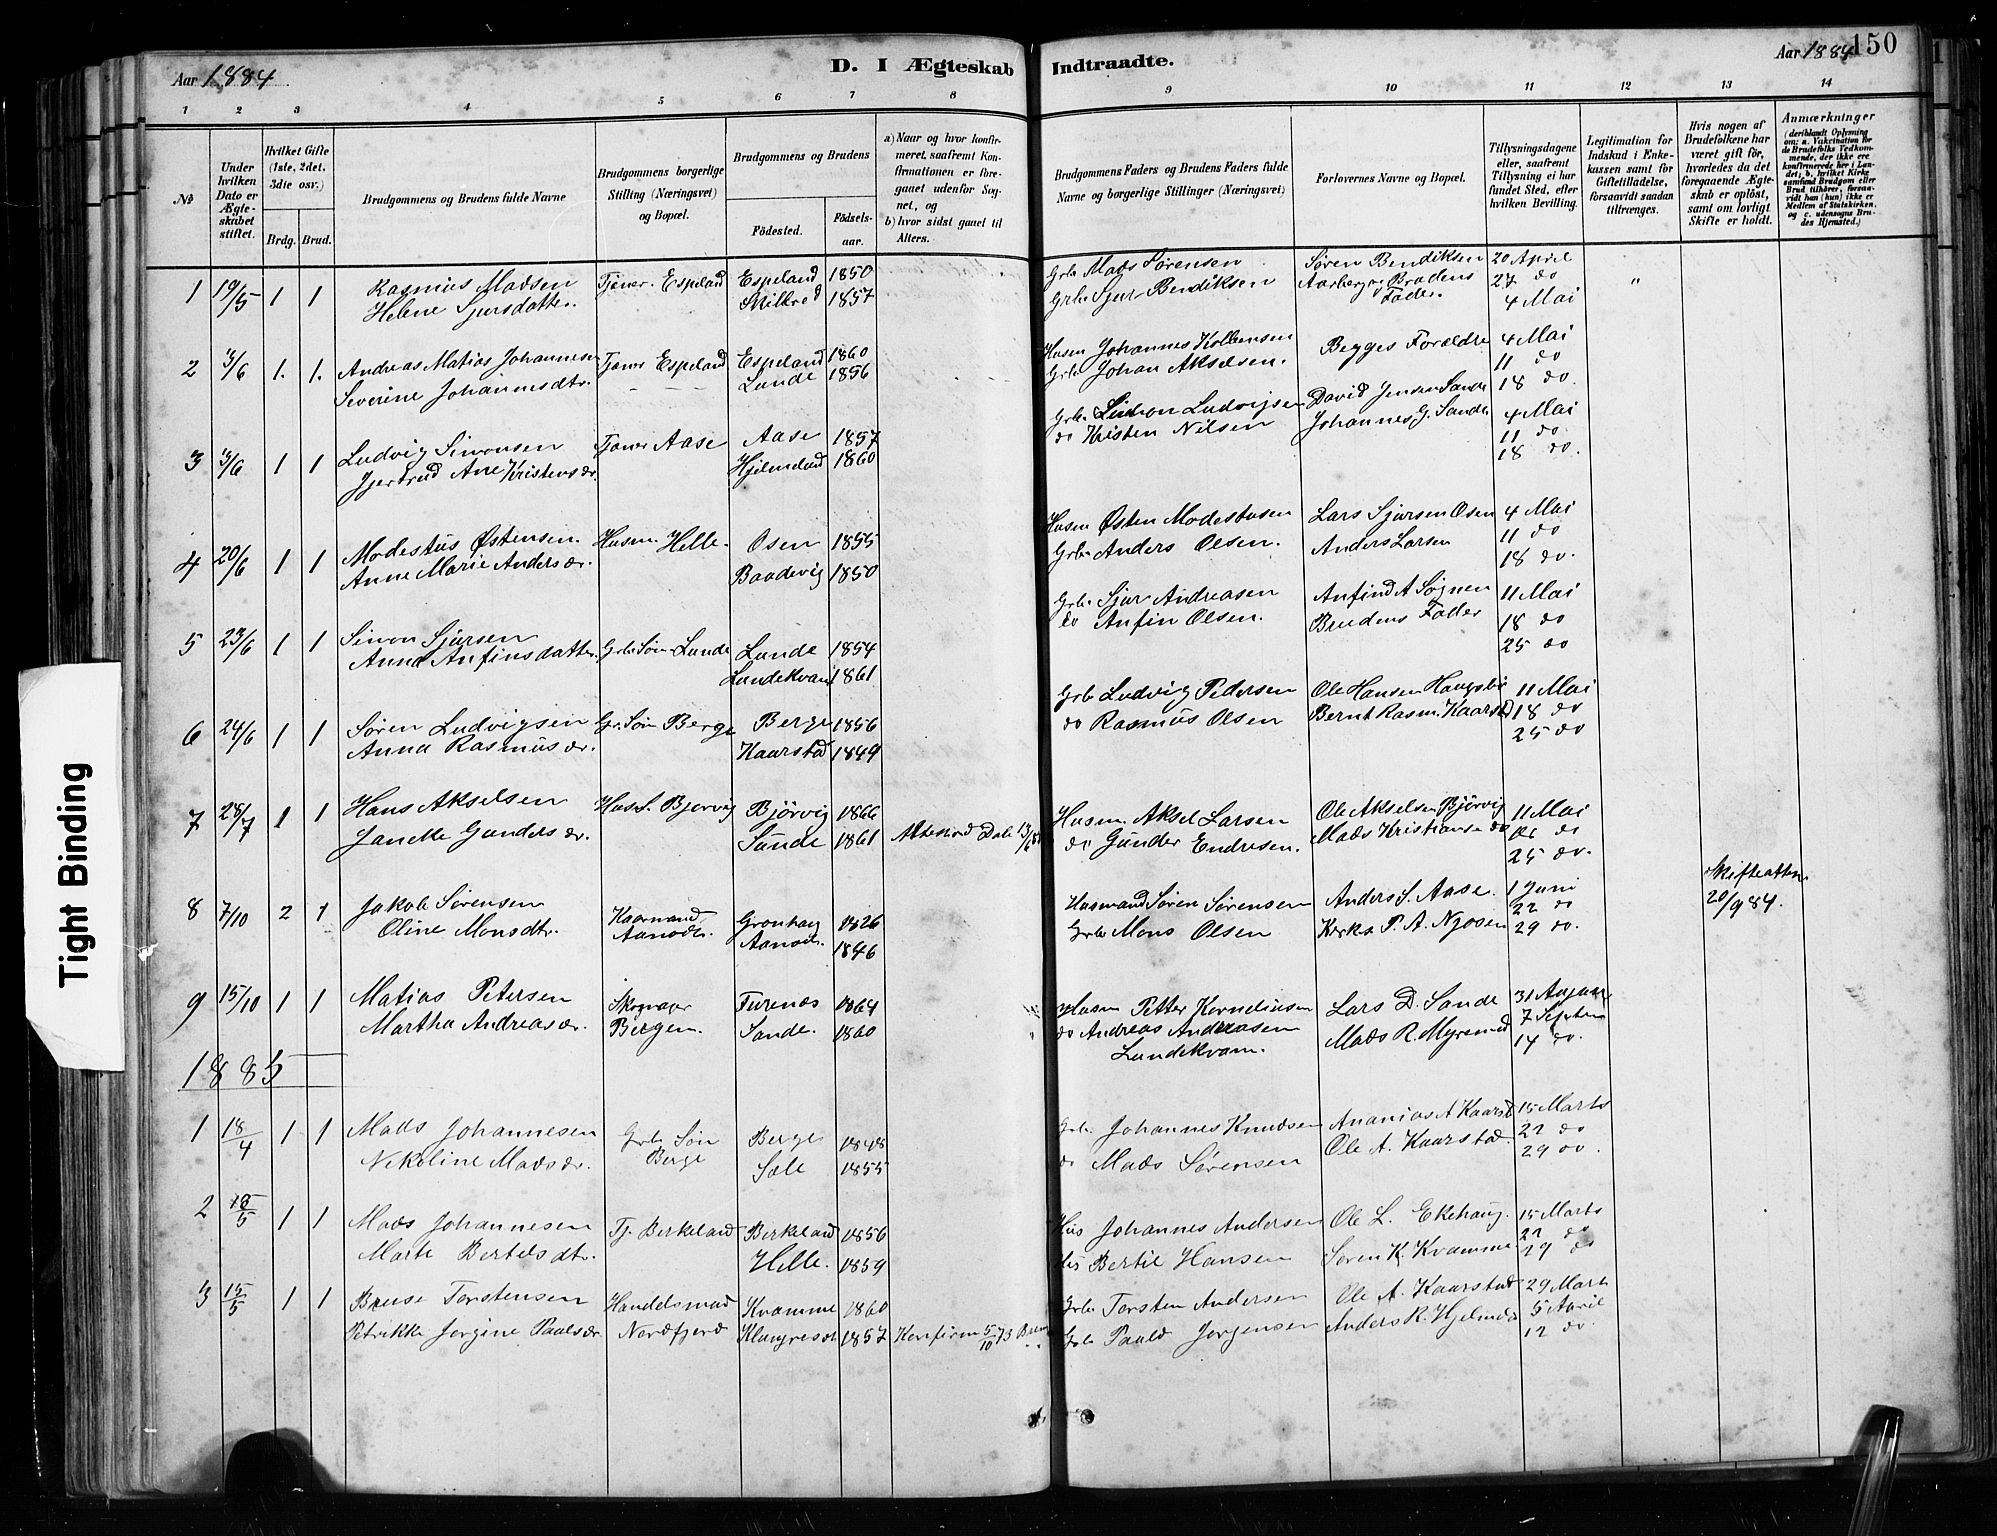 Aar 1884
D. I Ægteskab Indtraadte.
Aar 1884
150
1 2 3 4 5 6 7 8 9 10 11 12 13 14
No
Under hvilken Dato er Ægteskabet stiftet.
Hvilket Gifte (1ste, 2det, 3die osv.)
Brdg. Brud.
Brudgommens og Brudens fulde Navne
Brudgommens borgerlige Stilling (Næringsvei) og Bopæl.
Brudgommens og Brudens
Födested.
Födselsaar.
a) Naar og hvor konfirmeret, saafremt Konfirmationen er foregaaet udenfor Sognet, og
b) hvor sidst gaaet til Alters.
Brudgommens Faders og Brudens Faders fulde Navne og borgerlige Stillinger (Næringsvei)
Forlovernes Navne og Bopæl.
Tillysningsdagene eller, saafremt Tillysning ei har fundet Sted, efter hvilken Bevilling.
Legitimation for Indskud i Enkekassen samt for Giftetilladelse, forsaavidt saadan tiltrænges.
Hvis nogen af Brudefolkene har været gift för, hvorledes da det foregaaende Ægteskab er oplöst, samt om lovligt Skifte er holdt.
Anmærkninger
(deriblandt Oplysning om: a. Vakcination for de Brudefolks Vedkommende, der ikke ere konfirmerede her i Landet; b. hvilket Kirkesamfund Brudgom eller Brud tilhörer, forsaavidt han (hun) ikke er Medlem af Statskirken. og c. udensogns Brudes Hjemsted.)
1 19/5 1 1 Rasmus Madsen Tjener Espeland Espeland 1850 Grb Mads Sørensen Søren Bendiksen 20 April
Helene Sjursdatter Skilbred 1857 Grb Sjur Bendiksen Aarberg og Brudens Fader. 27 do "
4 Mai
2 13/6 1. 1. Andreas Matias Johannesen Tjener Espeland Espeland 1860 Husm Johannes Kolbensen Begges Forældre 4 Mai
Severine Johannesdtr. Lunde 1856 Grb Johan Akselsen. 11 do
18 do.
3 13/6 1 1 Ludvig Simonsen Tjener Aase Aase 1857 Grb. Simon Ludvigsen David Jensen Sande 4 Mai
Gjertrud Ane Kristensdr. Hjelmeland 1860 do Kristen Nilsen Johannes G. Sande 11 do
18 do.
4 20/6 1 1 Modestus Østensen Husm Helle. Osen 1855 Husm Østen Modestusen Lars Sjursen Osen 4 Mai
Anne Marie Andersdr. Baadevig 1850 Grb Anders Olsen. Anders Larsen 11 do
18 do.
5 23/6 1 1 Simon Sjursen Grb Søn Lunde Lunde 1854 Grb. Sjur Andreasen Anfind A Søgnen 11 Mai
Anna Anfinsdatter. Lundekvam 1861 do Anfin Olsen. Brudens Fader 18 do
25 do
6 24/6 1 1 Søren Ludvigsen Gr. Søn Berge Berge 1856 Grb Ludvig Pedersen Ole Hansen 11 Mai
Anna Rasmusdr. Kaarstad 1849 do Rasmus Olsen Bernt Rasm. Kaarstd 18 do
25 do
7 28/7 1 1 Hans Akselsen Hus.S. Bjørvig Bjørvig 1866 Husm. Aksel Larsen Ole Akselsen Bjørvig 11 Mai
Janette Gundersdr. Sunde 1861 do Gunder Endresen. Mads Kristianse do do
25 do.
8 7/10 2 1 Jakob Sørensen Gronhaug 1826 Husmand Søren Sørensen Anders S. Aase. 1 Juni Skifteatten
Oline Monsdtr. 1846 Grb Mons Olsen Kirks P. A. Njøsen 22 do 20/9 84.
29 do.
9 15/10 1 1 Matias Petersen Skomager Furenes 1864 Husm Petter Korneliusen Lars D. Sande 31 August
Martha Andreasdr. Bergen. Sande. 1860 do Andreas Andreasen Mads R. Myrems 7 Septbr
Lundekvam. 14 do.
1885
1 18/4 1 1 Mads Johannesen Grb Søn Berge 1848 Grb. Johannes Knudsen Ananias A Kaarst 15 Marts
Nikoline Madsdr. Berge Sole 1855 do Mads Sørensen Ole A. Kaarstad. 22 do
29 do.
2 18/5 1 1 Mads Johannesen Tj. Birkeland Birkeland 1856 Hus Johannes Andersen Ole L. Ekehaug. 15 Marts
Marte Bertelsdtr. Helle. 1859 Hus Bertil Hansen Søren K. Kvamme 22 do
29 do
3 15/5 1 1 Torstensen Handelsmand Kvamme 1860 Grb. Torsten Andersen Ole A. Kaarstad 29 Mart
Petrikke Jorgine Paulsdr. Nordfjord 1857 Konfirm 5/10 73 Grb Paul Jørgensen Anders R. Hjelmes 5 April
12 do.
Tight Binding